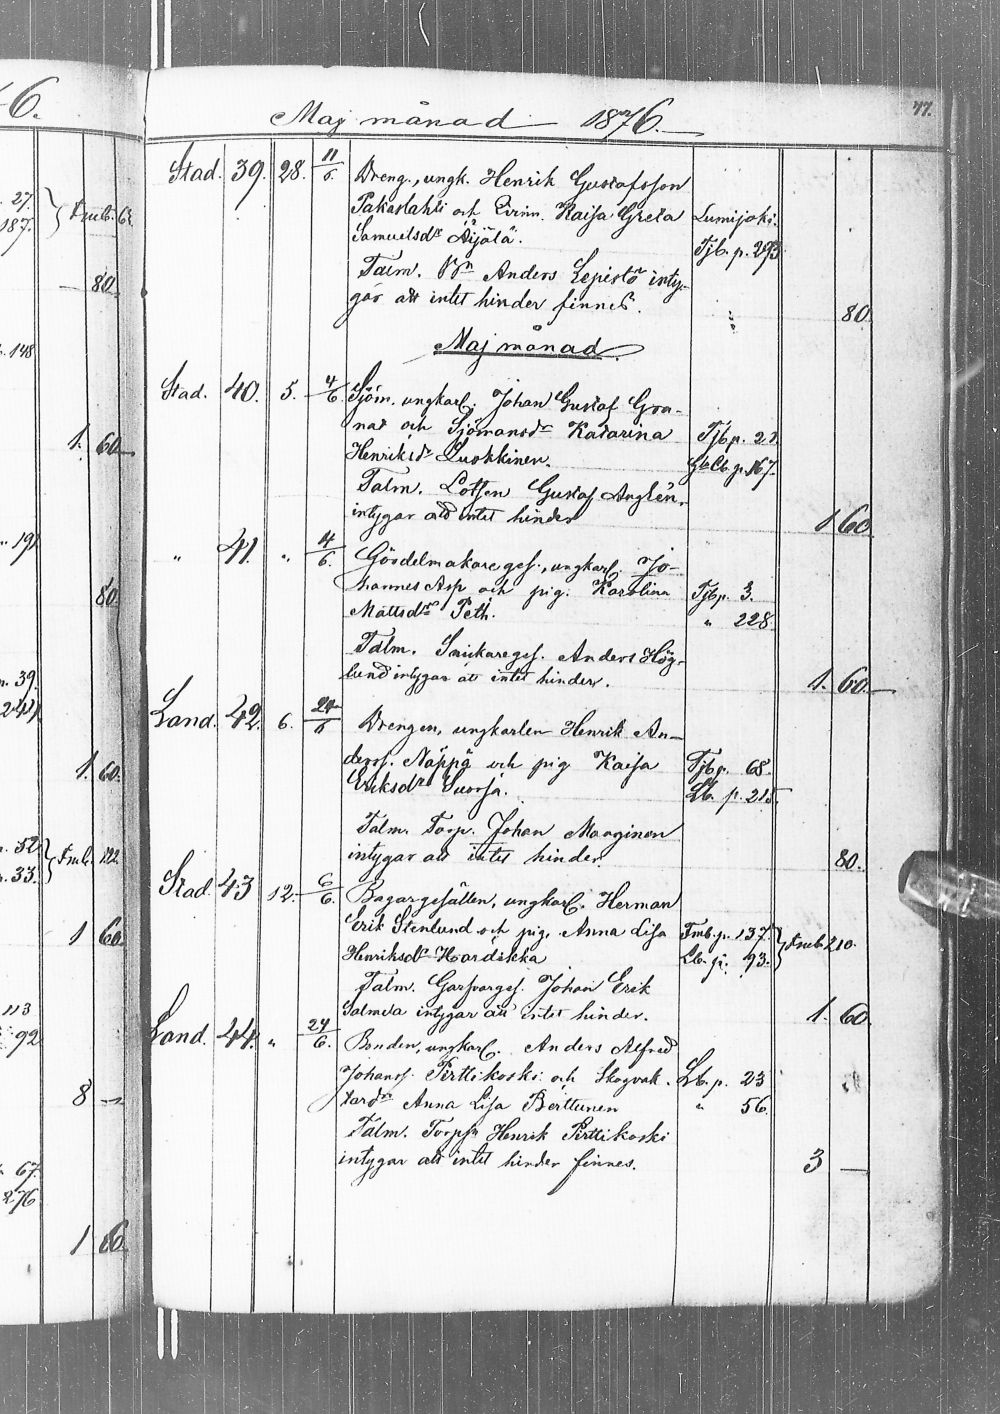 6.
Maj månad 1876.
77.
Stad. 39. 28. 11/6 Dreng., ungk. Henrik Gustafsson
Pakaslahti och Kaisa Greta Lumijoki.
Samuelsdr Äijälä. Tjb. p. 293
Talm. Anders Lepistö inty-
gar att intet hinder finnes. " 80.
Maj månad
Stad. 40. 5. 4/6 Sjöm. ungkarl. Johan Gustaf Gra-
nat och Sjömansdr Katarina Tjb p. 21.
Henriksdr Luokkinen. p. 167.
Talm. Lotsen Gustaf Anglén,
intygar att intet hinder 1. 60.
" 41. " 14/6. Gördelmakareges., ungkarl. Jo-
hannes Asp och pig. Karolina Tjb p. 3.
Mattsdr Peth. " 228.
Talm. Snickareges. Anders Hög-
lund intygar att intet hinder. 1. 60.
Land. 42. 6. 24/6 Drengen, ungkarlen Henrik An-
derss. Näppä och pig Kaisa Tjb p. 68.
Eriksdr Suorsa. Lb. p. 215.
Talm. Torp. Johan Manginen
intygar att intet hinder. 80.
Stad. 43 12. 6/6. Bagargesällen, ungkarl. Herman
Erik Stenlund och pig. Anna Lisa Fmb. p. 137. } Fmb. 210.
Henriksdr Hardikka Lb. p. 93.
Talm. Garfvarges. Johan Erik
Salmela intygar att intet hinder. 1. 60.
Land. 44. " 24/6. Bonden, ungkarl. Anders Alfred
Johanss. Pirttikoski och Skogvak- Lb. p. 23
tardr Anna Lisa Berttunen " 56.
Talm. Torpn Henrik Pirttikoski
intygar att intet hinder finnes. 3 —
27.
187. } Fmb.
80.
148
1. 60
19
80.
39.
241
1. 60.
52
33. } Fmb. 122.
1 60
113
92
8 —
67.
276
1 60.